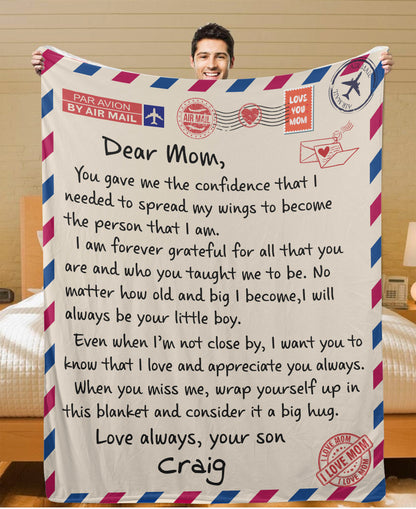 PAR AVION
BY AIR MAIL
AIR MAIL
LOVE
YOU
MOM
Dear Mom,
You gave me the confidence that I
needed to spread my wings to become
the person that I am.
I am forever grateful for all that you
are and who you taught me to be. No
matter how old and big I become,I will
always be your little boy.
Even when I'm not close by, I want you to
know that I love and appreciate you always.
When you miss me, wrap yourself up in
this blanket and consider it a big hug.
Love always, your son
Craig
I LOVE MOM
I LOVE MOM
I LOVE MOM